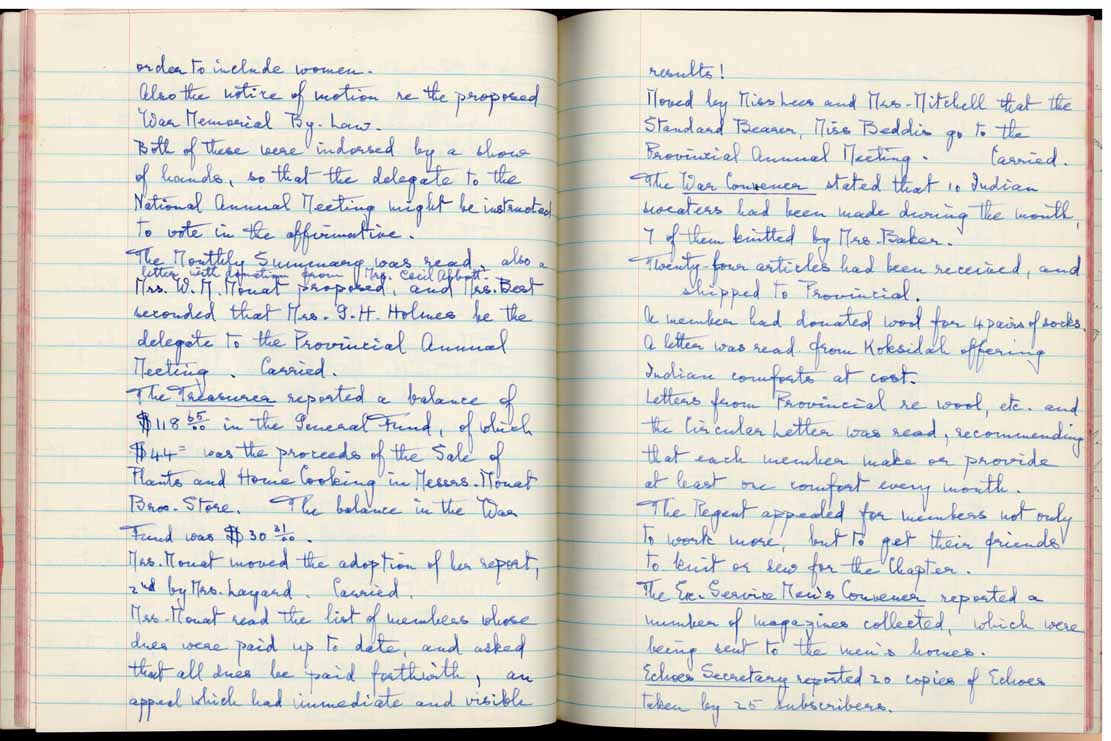 order to include women.
Also the notice of motion re the proposed
War Memorial By-Law.
Both of these were indorsed by a show
of hands, so that the delegate to the
National Annual Meeting might be instructed
to vote in the affirmative.
The Monthly Summary was read, also a
letter with donation from Mrs. Cecil Abbott.
Mrs. W. M. Mouat proposed, and Mrs. Best
seconded that Mrs. G. H. Holmes be the
delegate to the Provincial Annual
Meeting. Carried.
The Treasurer reported a balance of
$118 65/00 in the General Fund, of which
$44= was the proceeds of the Sale of
Plants and Home Cooking in Messrs. Mouat
Bros. Store. The balance in the War
Fund was $30 31/00.
Mrs. Mouat moved the adoption of her report,
2nd by Mrs. Layard. Carried.
Mrs. Mouat read the list of members whose
dues were paid up to date, and asked
that all dues be paid forthwith, an
appeal which had immediate and visible
results!
Moved by Miss Lees and Mrs. Mitchell that the
Standard Bearer, Miss Beddis go to the
Provincial Annual Meeting. Carried.
The War Convener stated that 10 Indian
sweaters had been made during the month,
7 of them knitted by Mrs. Baker.
Twenty-four articles had been received, and
shipped to Provincial.
A member had donated wool for 4 pairs of socks.
A letter was read from Koksidah offering
Indian comforts at cost.
Letters from Provincial re wool, etc. and
the Circular Letter was read, recommending
that each member make or provide
at least one comfort every month.
The Regent appealed for members not only
to work more, but to get their friends
to knit or sew for the Chapter.
The Ex. Service Men's Convener reported a
number of magazines collected, which were
being sent to the men's homes.
Echoes Secretary reported 20 copies of Echoes
taken by 25 subscribers.